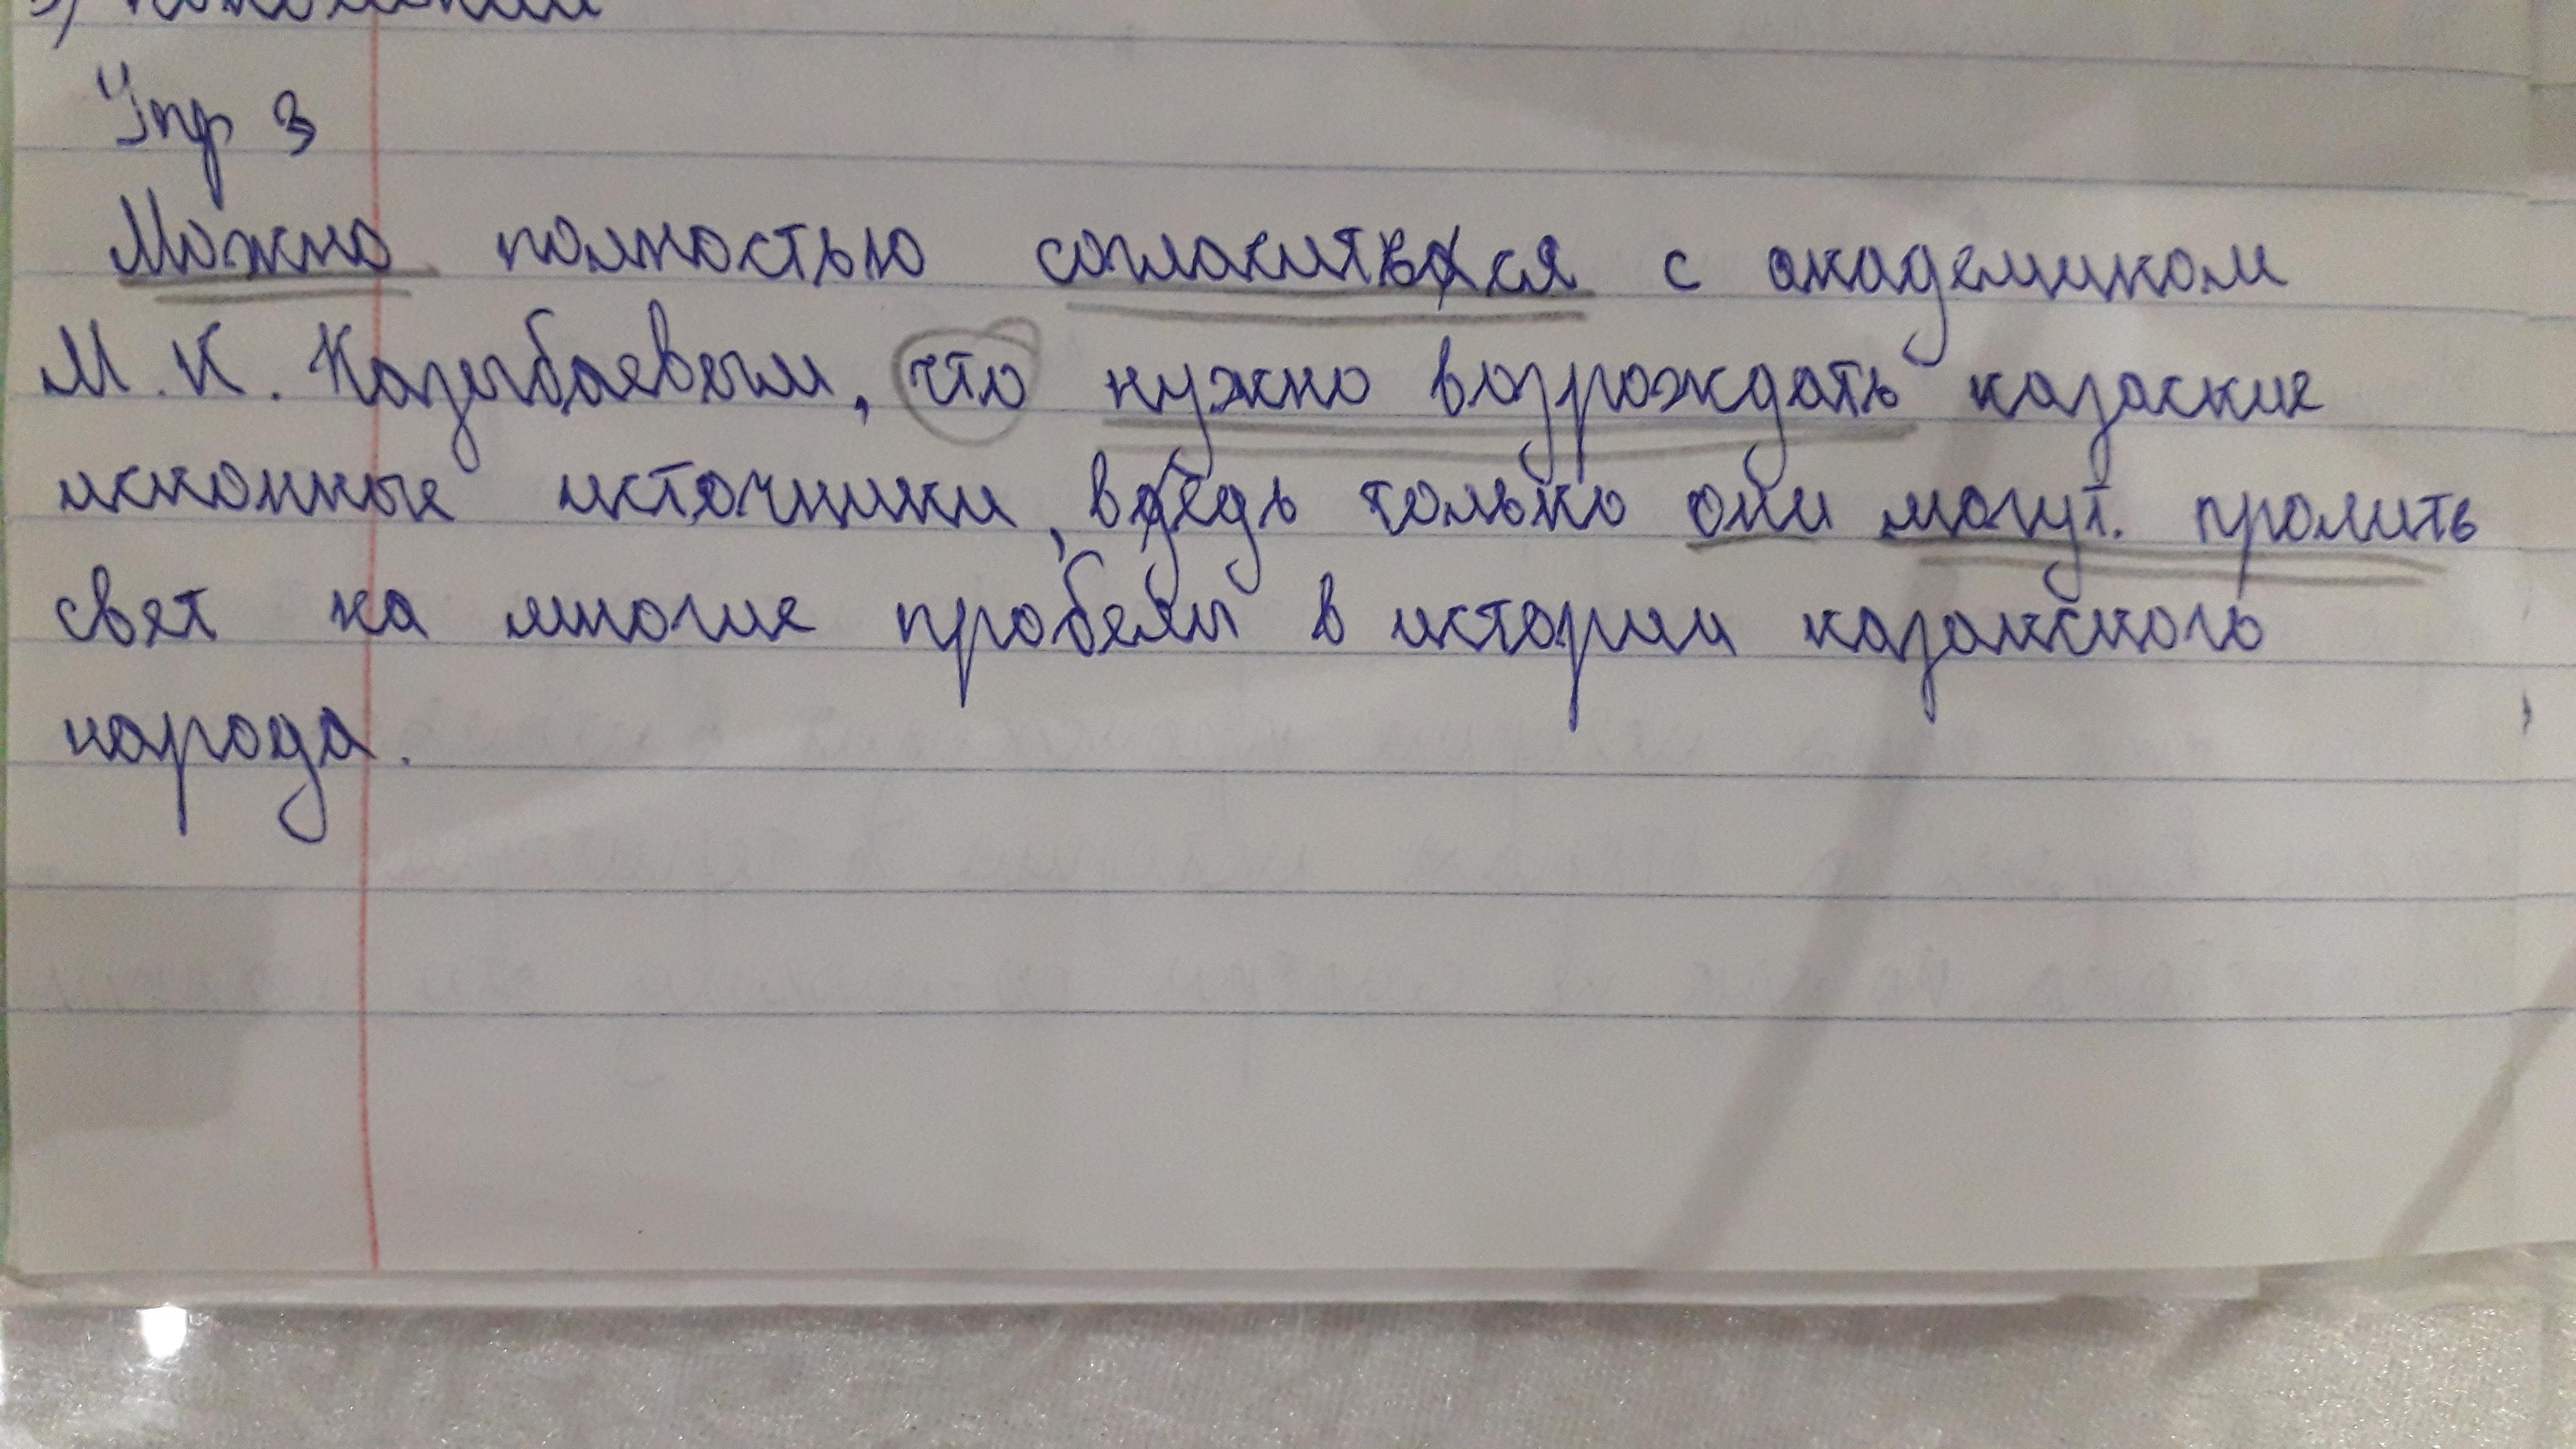 Упр 3
Можно полностью согласиться с академиком
М. К. Казыбаевым, что нужно возрождать казаские
исконные источники, ведь только они могут. пролить
свет на многие пробелы в истории казахского
народа.